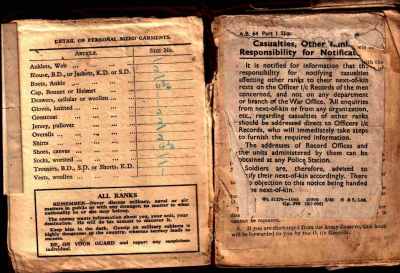 DETAIL OF PERSONAL MEN'S GARMENTS.
ARTICLE.
Size No.
Anklets, Web
Blouse, B.D., or Jackets, K.D. or S.D.
Boots, Ankle
Cap, Bonnet or Helmet
Drawers, cellular or woollen
Gloves, knitted
Greatcoat
Jersey, pullover
Overalls
Shirts
Shoes, canvas
Socks, worsted
Trousers, B.D., S.D. or Shorts, K.D.
Vests, woollen
ALL RANKS
REMEMBER—Never discuss military, naval or air
matters in public or with any stranger, no matter to what
nationality he or she may belong.
The enemy wants information about you, your unit, your
destination. He will do his utmost to discover it.
Keep him in the dark. Gossip on military subjects is
highly dangerous to the country, whereas secrecy leads to
success.
BE ON YOUR GUARD and report any suspicious
individual.
A.B. 64 Part I
Casualties, Other
Responsibility for
It is notified for information that the
responsibility for notifying casualties
affecting other ranks to their next-of-kin
rests on the Officer i/c Records of the men
concerned, and not on any department
or branch of the War Office. All enquiries
from next-of-kin or from any organization,
etc., regarding casualties of other ranks
should be addressed direct to Officers i/c
Records, who will immediately take steps
to furnish the required information.
The addresses of Record Offices and
the units administered by them can be
obtained at any Police Station.
Soldiers are, therefore, advised to
their next-of-kin accordingly. There
objection to this notice being handed
next-of-kin.
cannot be repaired.
If you are discharged from the Army
will be forwarded to you by the